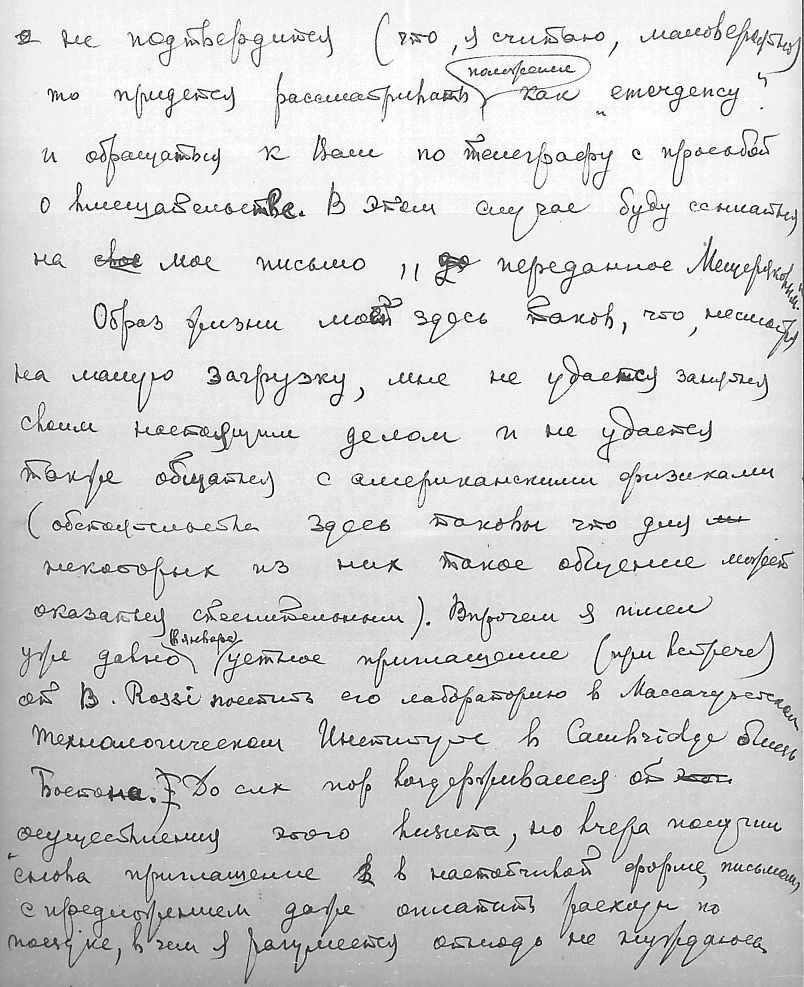 не подтвердится (что, я считаю, маловероятно)
то придется рассматривать положение как „emergency"
и обращаться к Вам по телеграфу с просьбой
о вмешательстве. В этом случае буду ссылаться
на мое письмо, переданное Мещеряковым.
Образ жизни мой здесь таков, что, несмотря
на малую загрузку, мне не удается заняться
своим настоящим делом и не удается
также общаться с американскими физиками
(обстоятельства здесь таковы что для
некоторых из них такое общение может
оказаться стеснительным). Впрочем я имел
уже давно (в январе) устное приглашение (при встрече)
от B. Rossi посетить его лабораторию в Массачузетском
Технологическом Институте в Cambridge близь
Бостона. До сих пор воздерживался от
осуществления этого визита, но вчера получил
снова приглашение в настойчивой форме, письмом,
с предложением даже оплатить расходы по
поездке, в чем я разумеется отнюдь не нуждаюсь